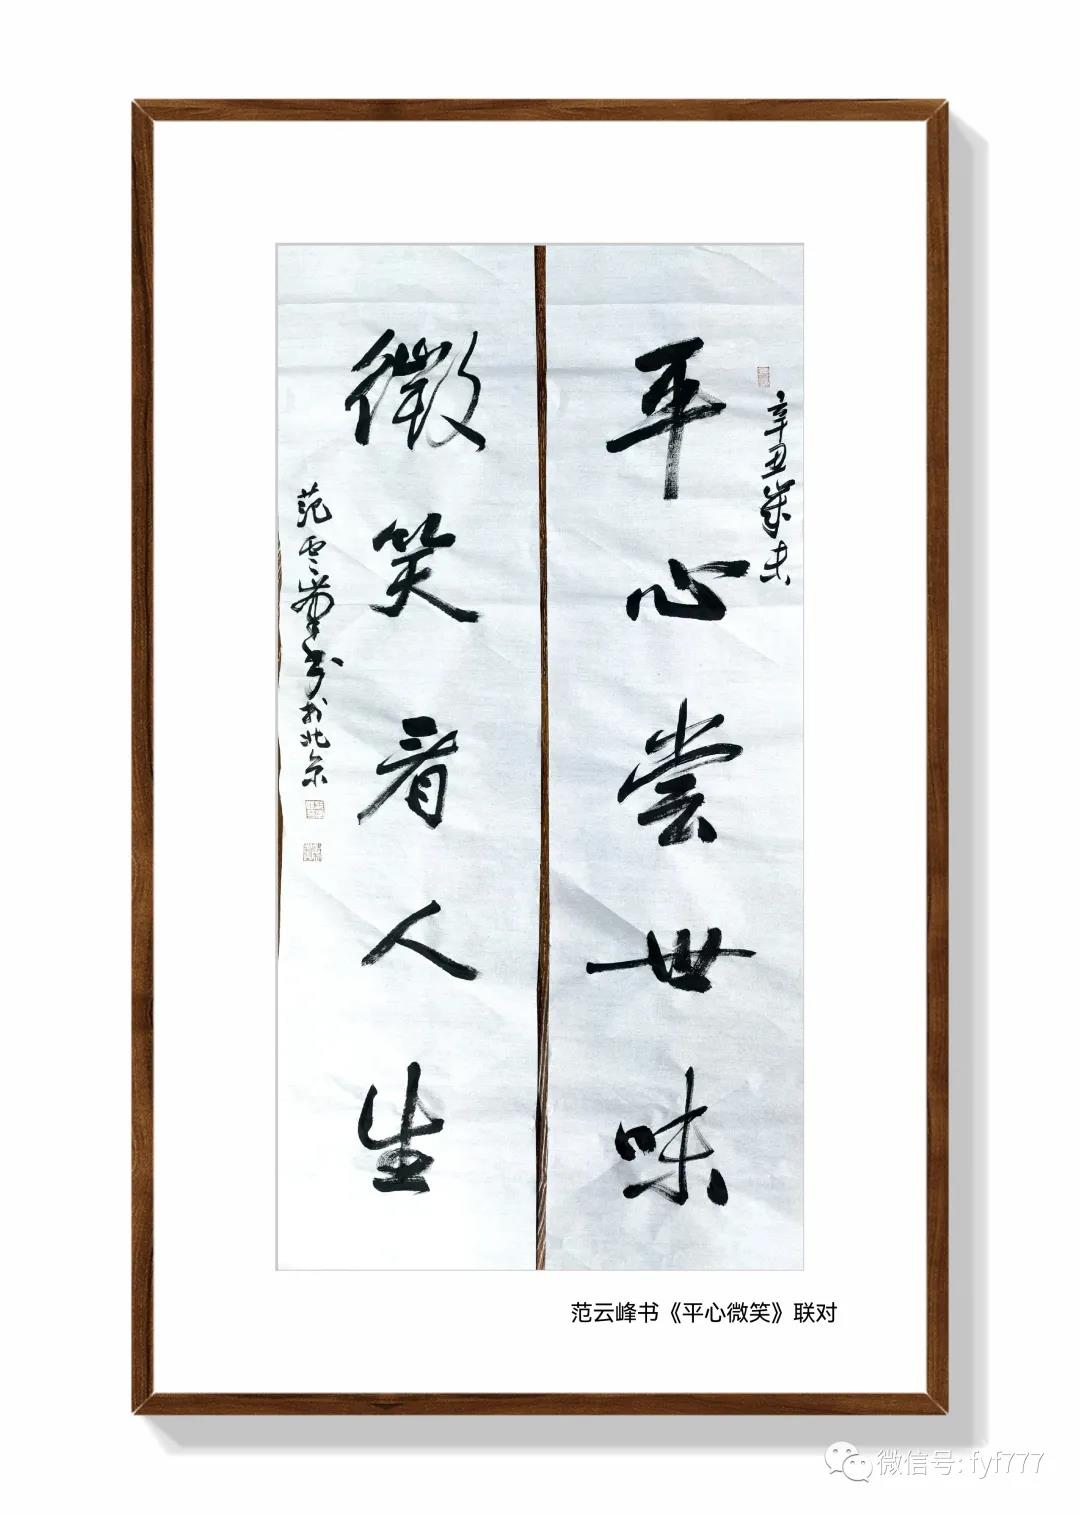 辛丑岁末
平心尝世味
微笑看人生
范云峰书于北京
范云峰书《平心微笑》联对
微信号: fyf777